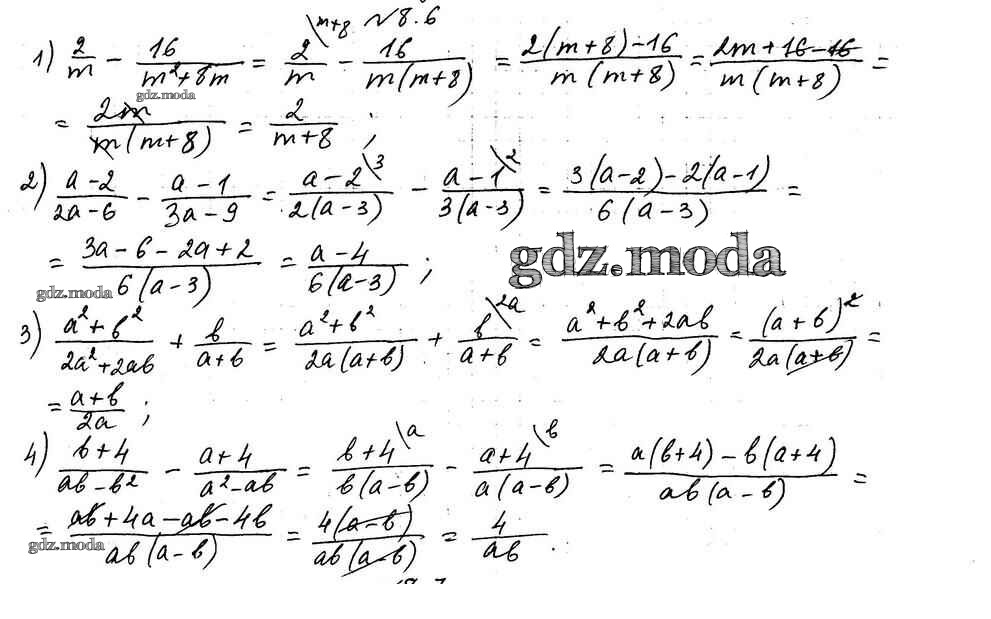 №8.6
1) 2/m - 16/(m²+8m) = 2\m+8/m - 16/(m(m+8)) = (2(m+8)-16)/(m(m+8)) = (2m+16-16)/(m(m+8)) =
gdz.moda
= 2m/(m(m+8)) = 2/(m+8) ;
2) (a-2)/(2a-6) - (a-1)/(3a-9) = (a-2)\3/(2(a-3)) - (a-1)\2/(3(a-3)) = (3(a-2)-2(a-1))/(6(a-3)) =
= (3a-6-2a+2)/(6(a-3)) = (a-4)/(6(a-3)) ;
gdz.moda
gdz.moda
3) (a²+b²)/(2a²+2ab) + b/(a+b) = (a²+b²)/(2a(a+b)) + b\2a/(a+b) = (a²+b²+2ab)/(2a(a+b)) = (a+b)²/(2a(a+b)) =
= (a+b)/2a ;
4) (b+4)/(ab-b²) - (a+4)/(a²-ab) = (b+4)\a/(b(a-b)) - (a+4)\b/(a(a-b)) = (a(b+4)-b(a+4))/(ab(a-b)) =
= (ab+4a-ab-4b)/(ab(a-b)) = 4(a-b)/(ab(a-b)) = 4/ab .
gdz.moda